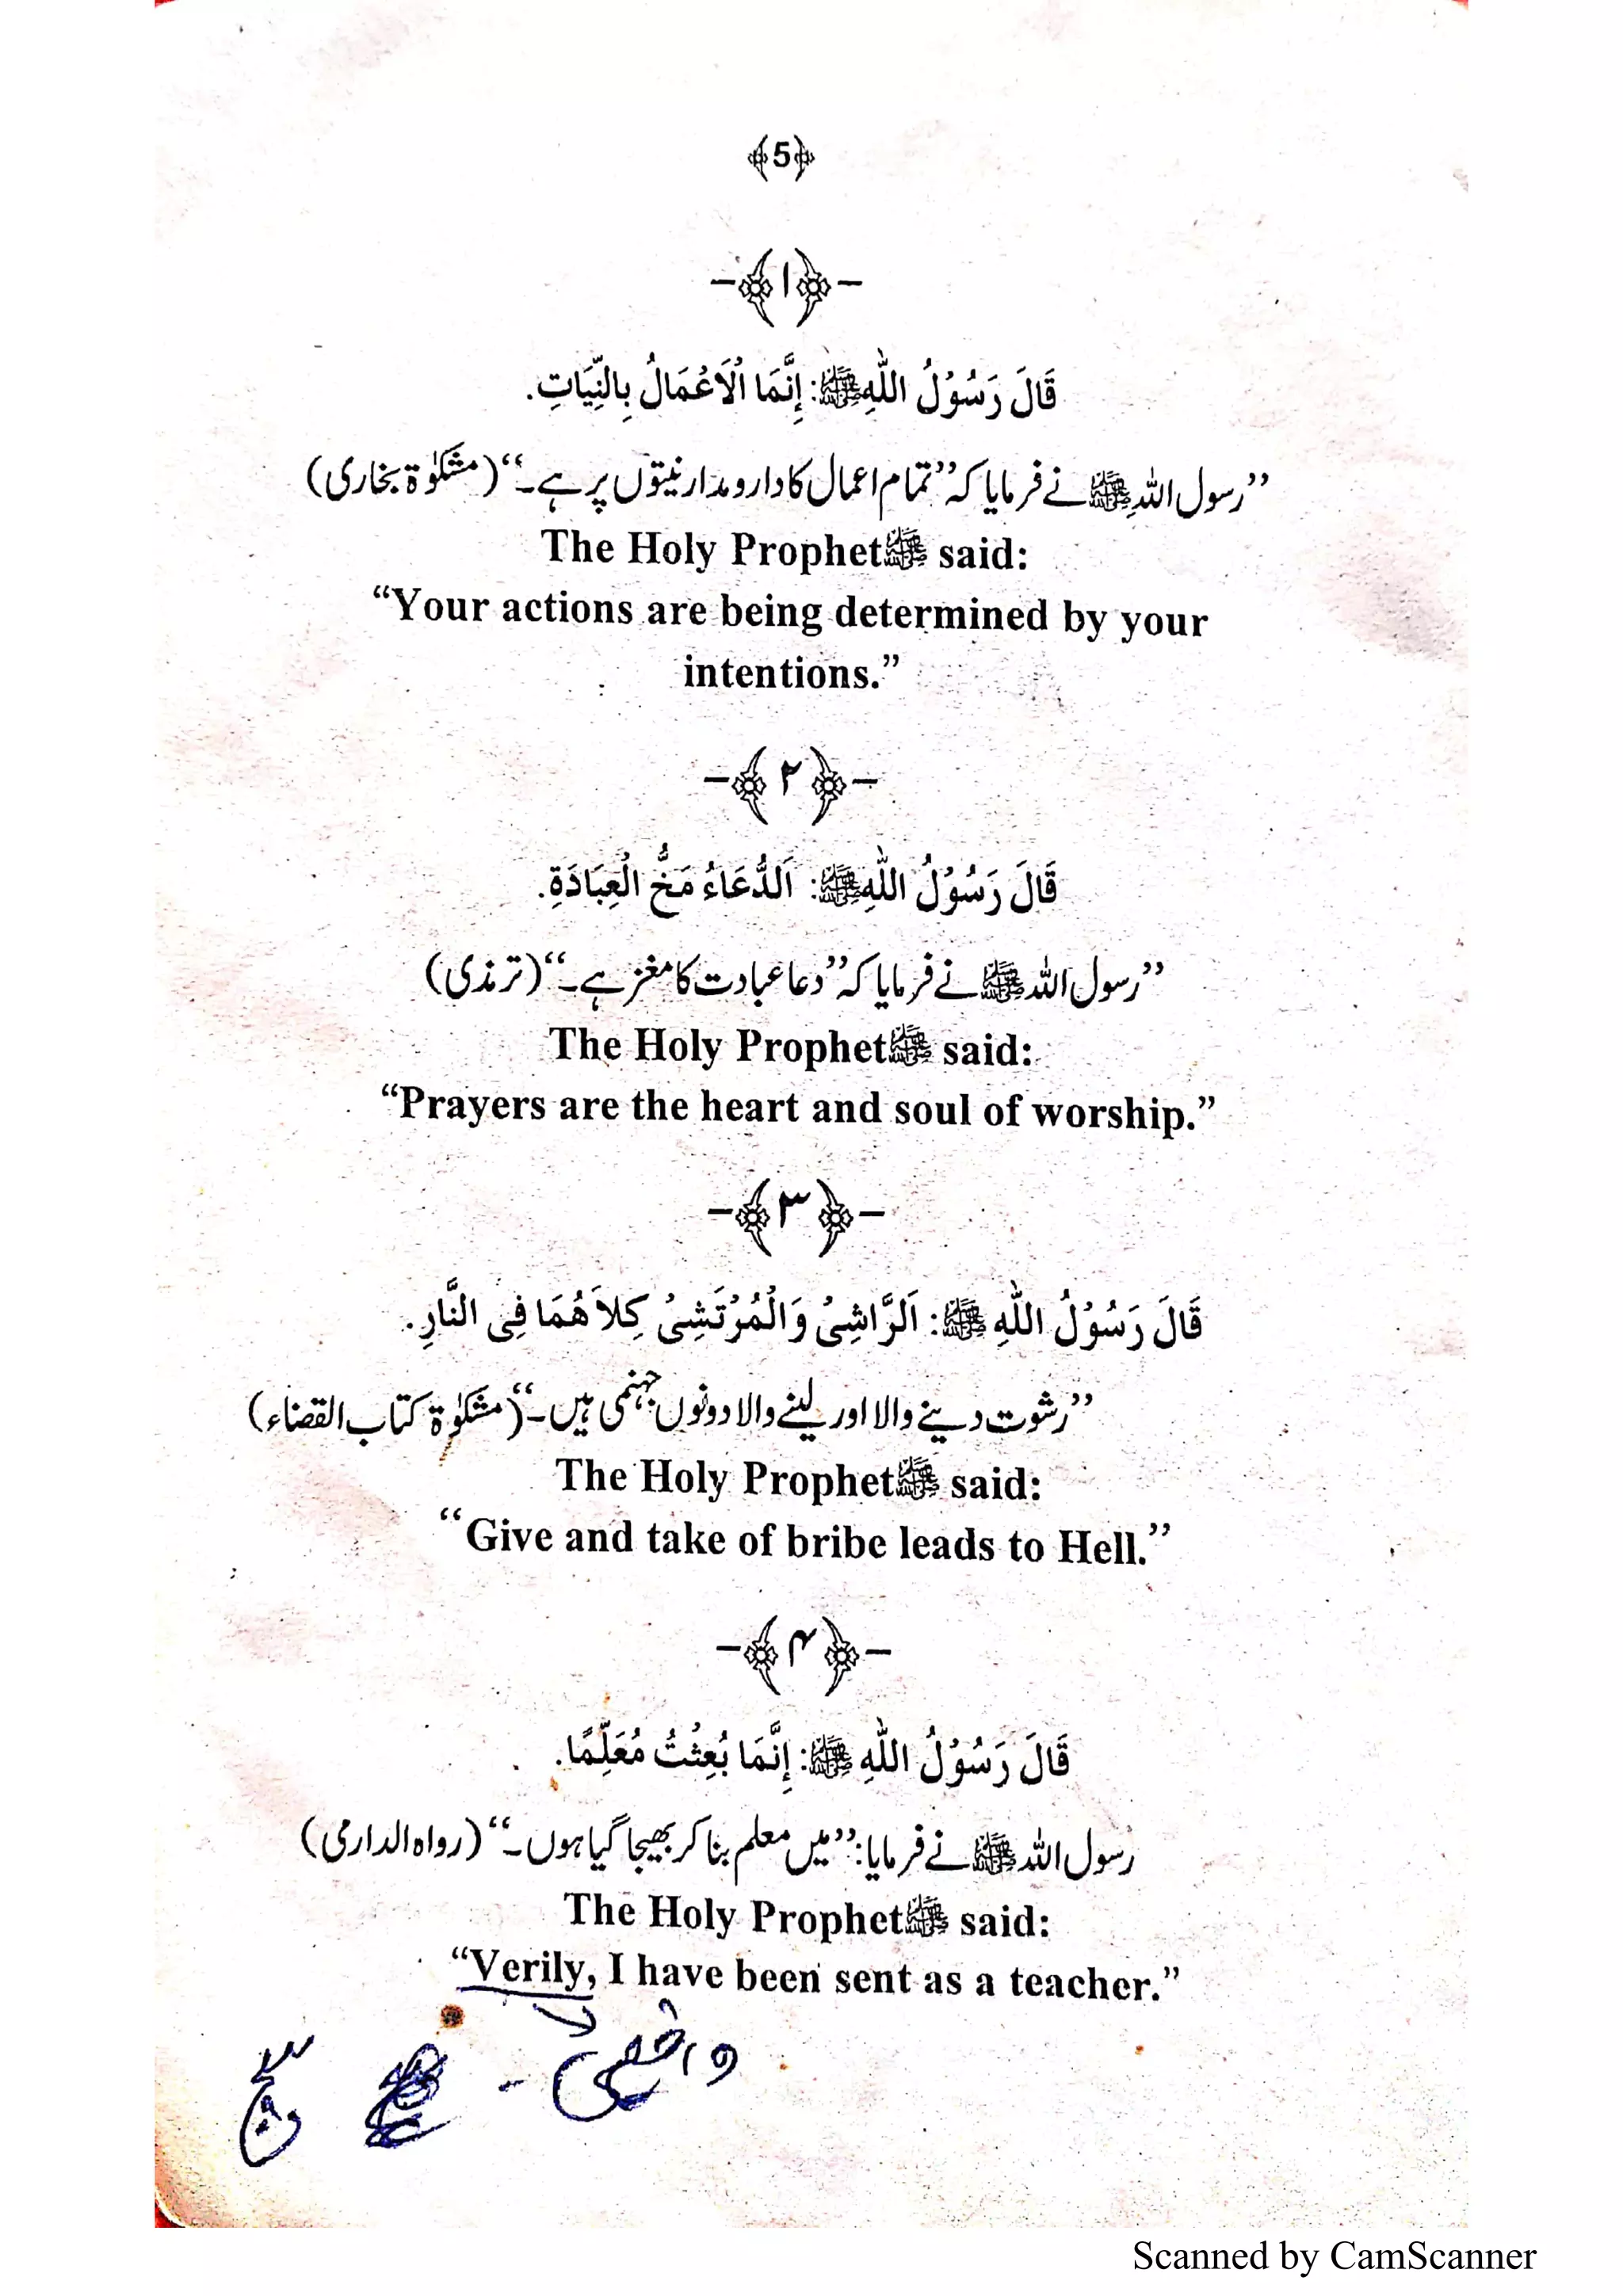 ﴿5﴾
-﴿۱﴾-
قَالَ رَسُوْلُ اللّٰهِ ﷺ: إِنَّمَا الْاَعْمَالُ بِالنِّيَاتِ.
’’رسول اللہ ﷺ نے فرمایا کہ ’’تمام اعمال کا دارومدار نیتوں پر ہے۔‘‘ (مشکوٰۃ بخاری)
The Holy Prophet ﷺ said:
“Your actions are being determined by your
intentions.”
-﴿۲﴾-
قَالَ رَسُوْلُ اللّٰهِ ﷺ: اَلدُّعَاءُ مَخُّ الْعِبَادَةِ.
’’رسول اللہ ﷺ نے فرمایا کہ ’’دعا عبادت کا مغز ہے۔‘‘ (ترمذی)
The Holy Prophet ﷺ said:
“Prayers are the heart and soul of worship.”
-﴿۳﴾-
قَالَ رَسُوْلُ اللّٰهِ ﷺ: اَلرَّاشِىْ وَالْمُرْتَشِىْ كِلاَهُمَا فِى النَّارِ.
’’رشوت دینے والا اور لینے والا دونوں جہنمی ہیں۔‘‘ (مشکوٰۃ کتاب القضاء)
The Holy Prophet ﷺ said:
“Give and take of bribe leads to Hell.”
-﴿۴﴾-
قَالَ رَسُوْلُ اللّٰهِ ﷺ: إِنَّمَا بُعِثْتُ مُعَلِّمًا.
رسول اللہ ﷺ نے فرمایا: ’’میں معلم بنا کر بھیجا گیا ہوں۔‘‘ (رواہ الدارمی)
The Holy Prophet ﷺ said:
“Verily, I have been sent as a teacher.”
واقعی - سچ
Scanned by CamScanner